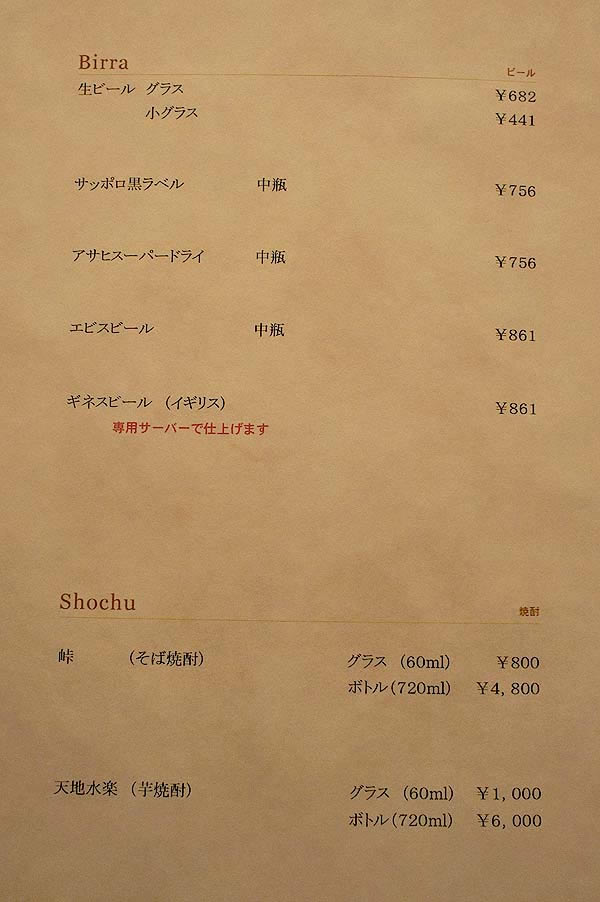 Birra ビール
生ビール グラス ¥682
小グラス ¥441
サッポロ黒ラベル 中瓶 ¥756
アサヒスーパードライ 中瓶 ¥756
エビスビール 中瓶 ¥861
ギネスビール (イギリス) ¥861
専用サーバーで仕上げます
Shochu 焼酎
峠 (そば焼酎) グラス (60ml) ¥800
ボトル(720ml) ¥4,800
天地水楽 (芋焼酎) グラス (60ml) ¥1,000
ボトル(720ml) ¥6,000